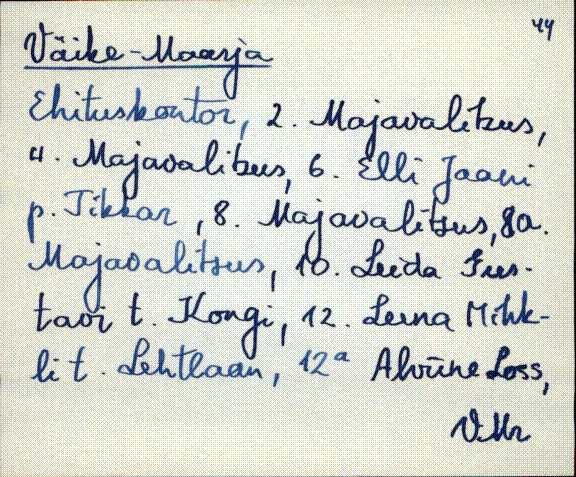 44
Väike-Maarja
Ehituskontor, 2. Majavalitsus,
4. Majavalitsus, 6. Elli Jaani
p. Tikkar, 8. Majavalitsus, 8a.
Majavalitsus, 10. Leida Gus-
tavi t. Kongi, 12. Leena Mihk-
li t. Lehtlaan, 12a Alviine Loss,
V.Mr